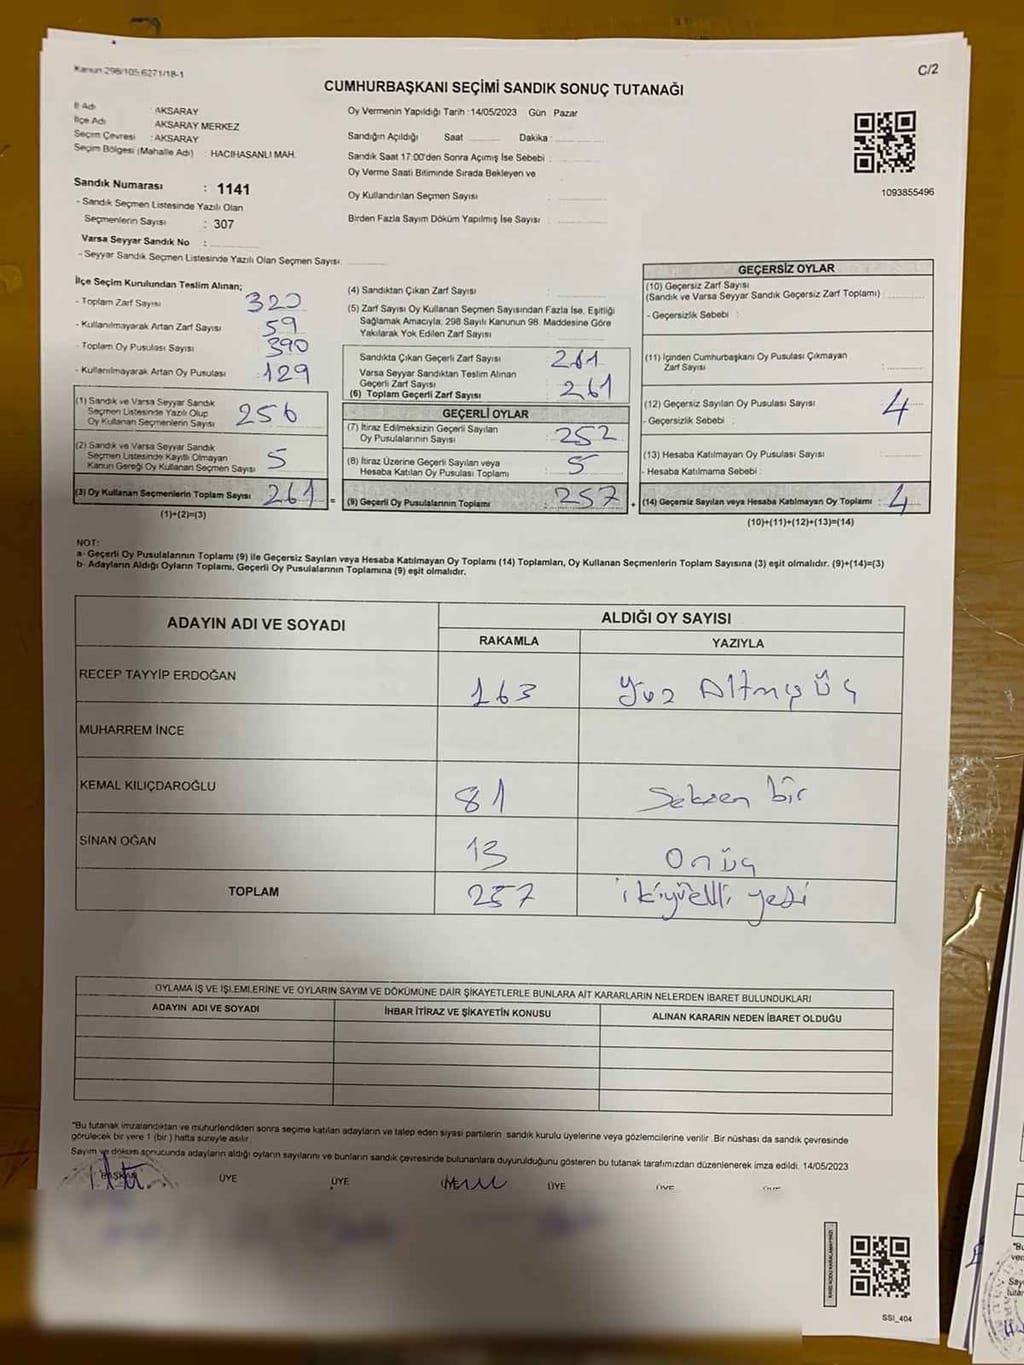 Kanun 298/105,6271/18-1
C/2
CUMHURBAŞKANI SEÇİMİ SANDIK SONUÇ TUTANAĞI
İl Adı : AKSARAY
İlçe Adı : AKSARAY MERKEZ
Seçim Çevresi : AKSARAY
Seçim Bölgesi (Mahalle Adı) : HACIHASANLI MAH.
Sandık Numarası : 1141
- Sandık Seçmen Listesinde Yazılı Olan
Seçmenlerin Sayısı : 307
Varsa Seyyar Sandık No :
- Seyyar Sandık Seçmen Listesinde Yazılı Olan Seçmen Sayısı:
Oy Vermenin Yapıldığı Tarih : 14/05/2023 Gün Pazar
Sandığın Açıldığı Saat Dakika :
Sandık Saat 17:00'den Sonra Açımış İse Sebebi :
Oy Verme Saati Bitiminde Sırada Bekleyen ve
Oy Kullandırılan Seçmen Sayısı :
Birden Fazla Sayım Döküm Yapılmış İse Sayısı :
1093855496
İlçe Seçim Kurulundan Teslim Alınan;
- Toplam Zarf Sayısı : 320
- Kullanılmayarak Artan Zarf Sayısı : 59
- Toplam Oy Pusulası Sayısı : 390
- Kullanılmayarak Artan Oy Pusulası : 129
(1) Sandık ve Varsa Seyyar Sandık
Seçmen Listesinde Yazılı Olup
Oy Kullanan Seçmenlerin Sayısı : 256
(2) Sandık ve Varsa Seyyar Sandık
Seçmen Listesinde Kayıtlı Olmayan
Kanun Gereği Oy Kullanan Seçmen Sayısı : 5
(3) Oy Kullanan Seçmenlerin Toplam Sayısı : 261 =
(1)+(2)=(3)
(4) Sandıktan Çıkan Zarf Sayısı :
(5) Zarf Sayısı Oy Kullanan Seçmen Sayısından Fazla İse, Eşitliği
Sağlamak Amacıyla, 298 Sayılı Kanunun 98. Maddesine Göre
Yakılarak Yok Edilen Zarf Sayısı :
Sandıkta Çıkan Geçerli Zarf Sayısı : 261
Varsa Seyyar Sandıktan Teslim Alınan
Geçerli Zarf Sayısı :
(6) Toplam Geçerli Zarf Sayısı : 261
GEÇERLİ OYLAR
(7) İtiraz Edilmeksizin Geçerli Sayılan
Oy Pusulalarının Sayısı : 252
(8) İtiraz Üzerine Geçerli Sayılan veya
Hesaba Katılan Oy Pusulası Toplamı : 5
(9) Geçerli Oy Pusulalarının Toplamı : 257 +
GEÇERSİZ OYLAR
(10) Geçersiz Zarf Sayısı
(Sandık ve Varsa Seyyar Sandık Geçersiz Zarf Toplamı) :
- Geçersizlik Sebebi :
(11) İçinden Cumhurbaşkanı Oy Pusulası Çıkmayan
Zarf Sayısı :
(12) Geçersiz Sayılan Oy Pusulası Sayısı : 4
- Geçersizlik Sebebi :
(13) Hesaba Katılmayan Oy Pusulası Sayısı :
- Hesaba Katılmama Sebebi :
(14) Geçersiz Sayılan veya Hesaba Katılmayan Oy Toplamı : 4
(10)+(11)+(12)+(13)=(14)
NOT:
a- Geçerli Oy Pusulalarının Toplamı (9) ile Geçersiz Sayılan veya Hesaba Katılmayan Oy Toplamı (14) Toplamları, Oy Kullanan Seçmenlerin Toplam Sayısına (3) eşit olmalıdır. (9)+(14)=(3)
b- Adayların Aldığı Oyların Toplamı, Geçerli Oy Pusulalarının Toplamına (9) eşit olmalıdır.
ADAYIN ADI VE SOYADI
ALDIĞI OY SAYISI
RAKAMLA YAZIYLA
RECEP TAYYİP ERDOĞAN 163 Yüz Altmış Üç
MUHARREM İNCE
KEMAL KILIÇDAROĞLU 81 Seksen bir
SİNAN OĞAN 13 On üç
TOPLAM 257 ikiyüelli yedi
OYLAMA İŞ VE İŞLEMLERİNE VE OYLARIN SAYIM VE DÖKÜMÜNE DAİR ŞİKAYETLERLE BUNLARA AİT KARARLARIN NELERDEN İBARET BULUNDUKLARI
ADAYIN ADI VE SOYADI İHBAR İTİRAZ VE ŞİKAYETİN KONUSU ALINAN KARARIN NEDEN İBARET OLDUĞU
*Bu tutanak imzalandıktan ve mühürlendikten sonra seçime katılan adayların ve talep eden siyasi partilerin sandık kurulu üyelerine veya gözlemcilerine verilir. Bir nüshası da sandık çevresinde
görülecek bir yere 1 (bir) hafta süreyle asılır.
Sayım ve döküm sonucunda adayların aldığı oyların sayılarını ve bunların sandık çevresinde bulunanlara duyurulduğunu gösteren bu tutanak tarafımızdan düzenlenerek imza edildi. 14/05/2023
BAŞKAN ÜYE ÜYE ÜYE ÜYE
SSI_404